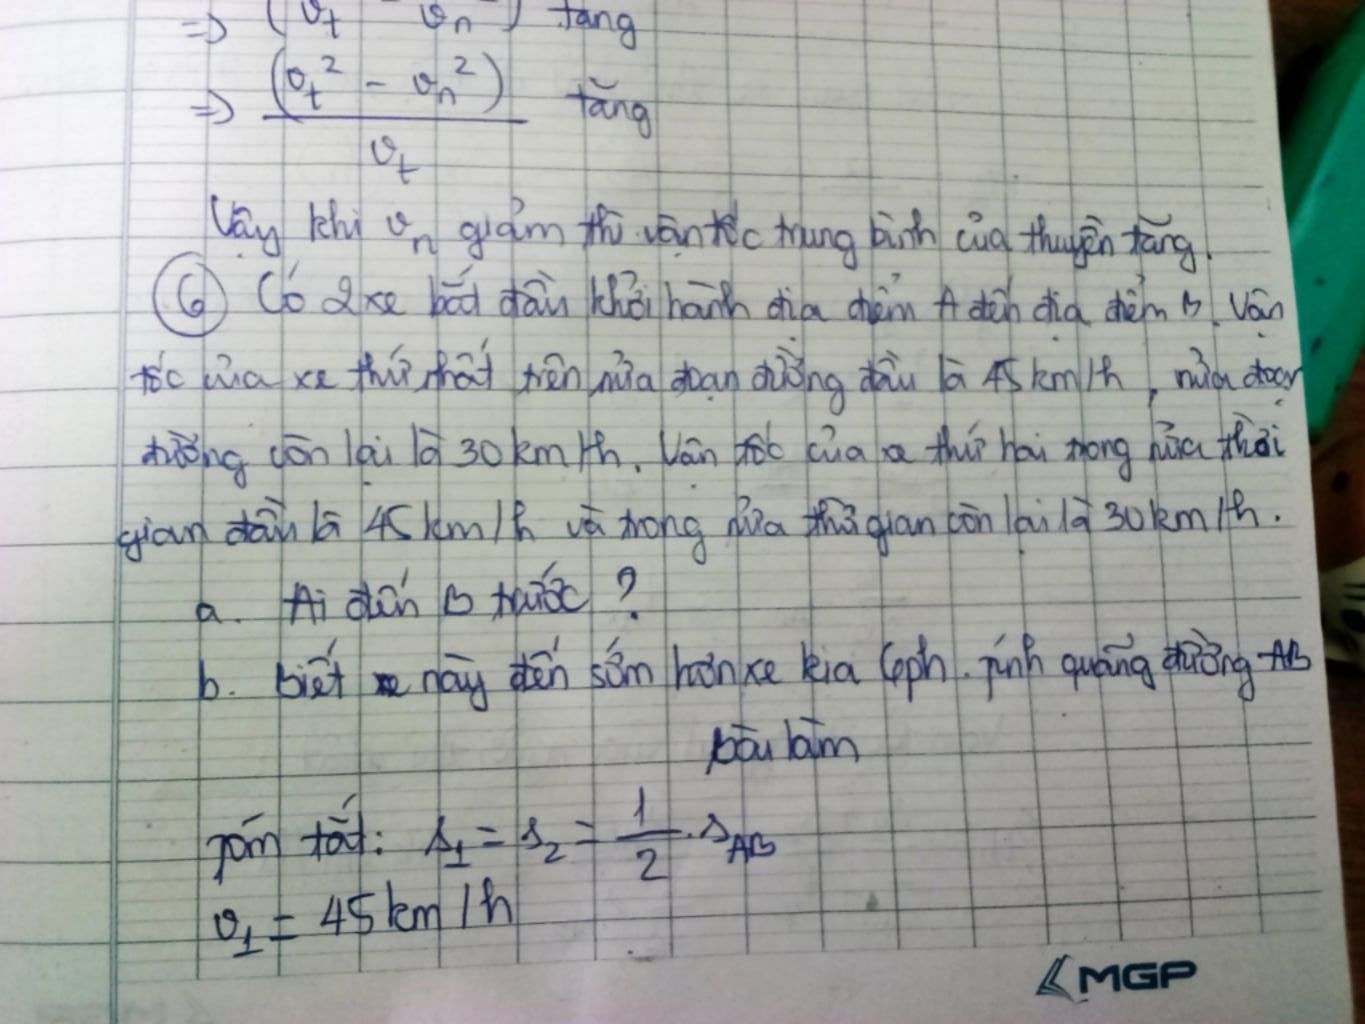 => (v_t - v_n) tăng
=> (v_t² - v_n²) / v_t tăng
Vậy khi v_n giảm thì vận tốc trung bình của thuyền tăng.
⑥ Có 2 xe bắt đầu khởi hành địa điểm A đến địa điểm B. Vận
tốc của xe thứ nhất trên nửa đoạn đường đầu là 45 km/h, nửa đoạn
đường còn lại là 30 km/h. Vận tốc của xe thứ hai trong nửa thời
gian đầu là 45 km/h và trong nửa thời gian còn lại là 30 km/h.
a. Ai đến B trước?
b. biết xe này đến sớm hơn xe kia 6ph. Tính quãng đường AB
Bài làm
Tóm tắt: s₁ = s₂ = 1/2 . s_AB
v₁ = 45 km/h
MGP